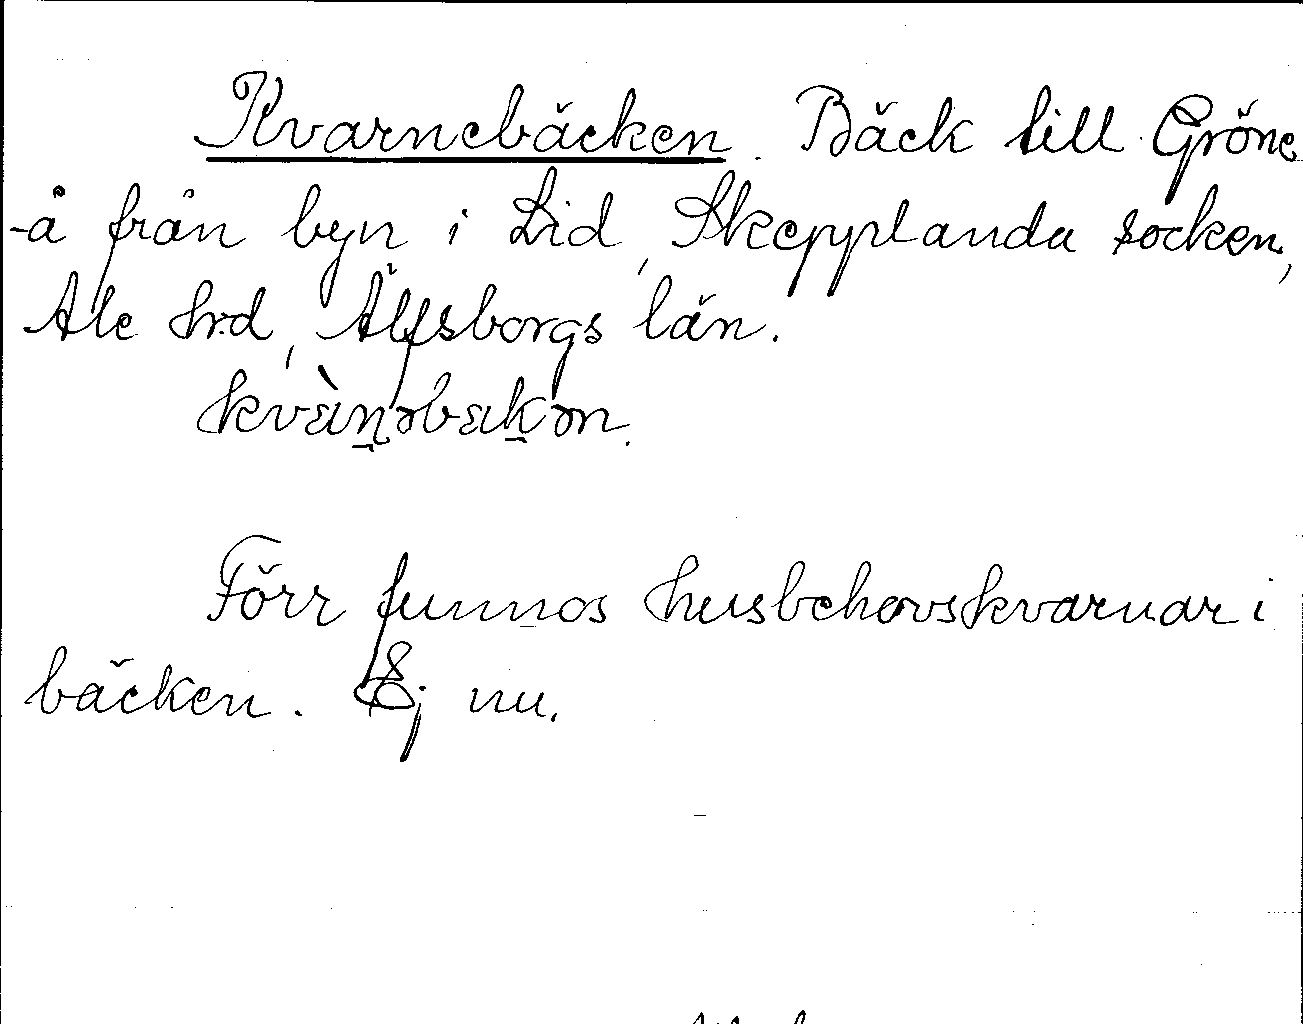 Kvarnebäcken. Bäck till Gröne
-å från byn i Lid, Skepplanda socken,
Ale hrd, Älfsborgs län.
Förr funnos husbehovskvarnar i
bäcken. Ej nu.